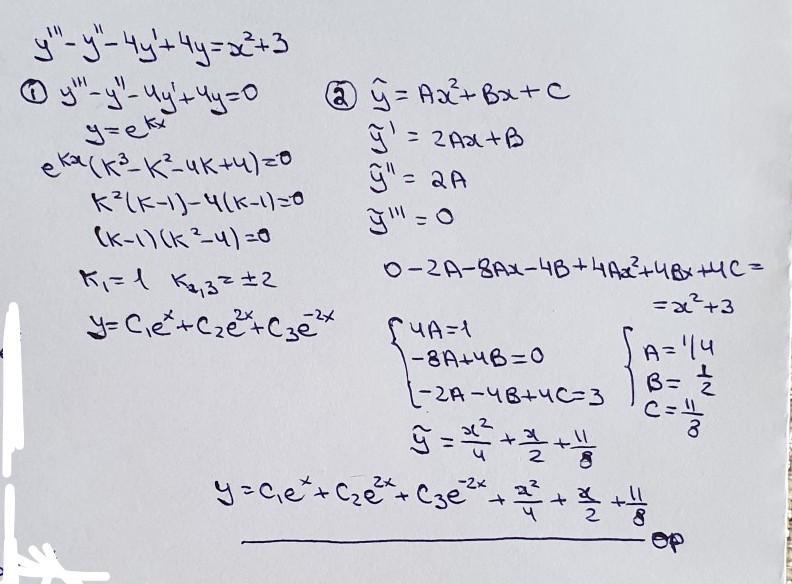 y''' - y'' - 4y' + 4y = x² + 3
① y''' - y'' - 4y' + 4y = 0
y = e^{kx}
e^{kx}(k³ - k² - 4k + 4) = 0
k²(k-1) - 4(k-1) = 0
(k-1)(k²-4) = 0
k₁ = 1 k₂,₃ = ±2
y = C₁e^x + C₂e^{2x} + C₃e^{-2x}
② ỹ = Ax² + Bx + C
ỹ' = 2Ax + B
ỹ'' = 2A
ỹ''' = 0
0 - 2A - 8Ax - 4B + 4Ax² + 4Bx + 4C =
= x² + 3
{ 4A = 1
-8A + 4B = 0
-2A - 4B + 4C = 3
{ A = 1/4
B = 1/2
C = 11/8
ỹ = x²/4 + x/2 + 11/8
y = C₁e^x + C₂e^{2x} + C₃e^{-2x} + x²/4 + x/2 + 11/8